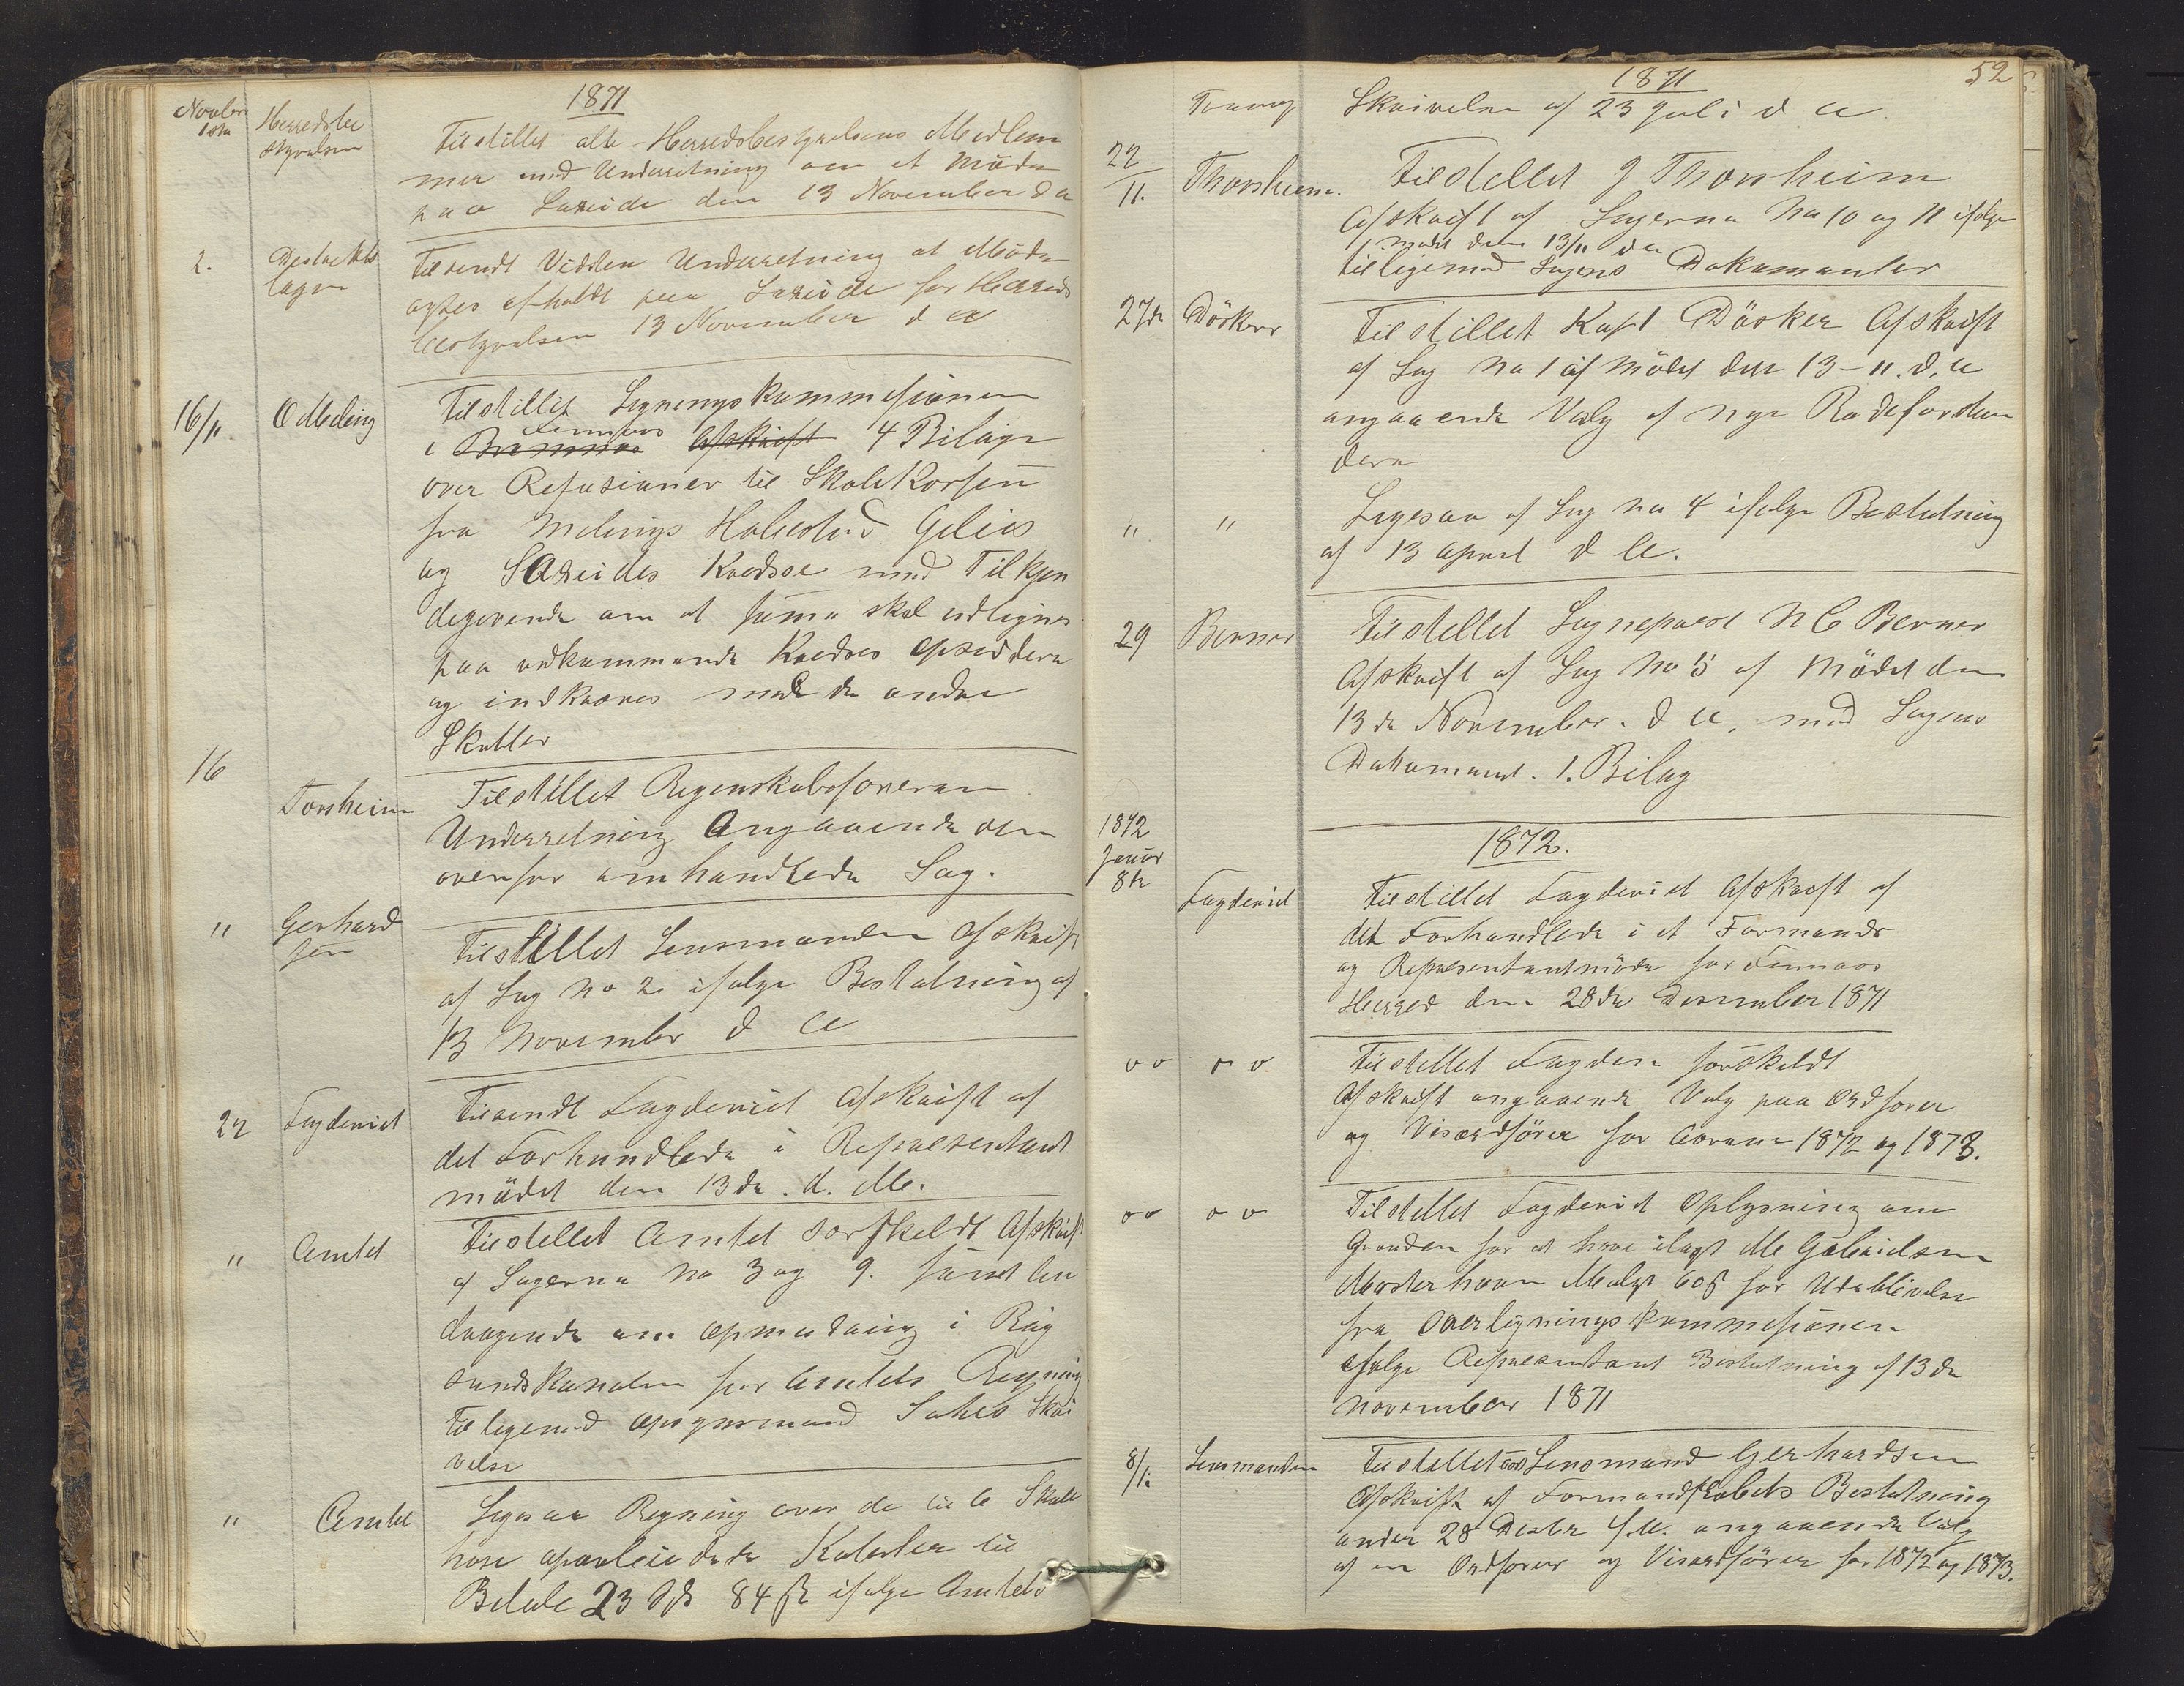 1871
Novbr 1ste
Herredsbe
styrelsen
Tilstillet alle Herredsbestyrelsens Medlem
mer med Underretning om et Møde
paa Sareide den 13 November d a
2.
Destrekts
lægen
Tilsendt Vidden Underretning at Møde
agtes afholdt paa Sareide for Herreds
bestyrelsen 13 November d a
16/11.
O Meling
Tilstillet Ligningskommissionen
Finnaas
i Bremnæs Afskrift 4 Bilage
over Refusioner til Skolekassen
fra Melings Holestad Gilies
og Sareides Kredse med Tilkjen
degivende om at samme skal udlignes
paa vedkommende Kredses Opsiddere
og indkræves med de andre
Skatter
16
Torsheim
Tilstillet Regenskabsføreren
Underretning Angaaende den
ovenfor omhandlede Sag.
"
Gerhard
sen
Tilstillet Lensmanden Afskrift
af Sag No 2 ifølge Beslutning af
13 November d a
22
Fogderiet
Tilsendt Fogderiet Afskrift af
det Forhandlede i Repræsentant
mödet den 13de. d. M.
"
Amtet
Tilstillet Amtet særskeldt Afskrift
af Sagerne No 3 og 9. samt An
dragende om Opmudring i Røg
sundskanalen for Amtets Regning
tilligemed Opsynsmand Sahls Skri
velse
"
Amtet
Ligesaa Regning over de til 6 Skole
huse oparbeidede Katester til
Beløb 23 Spd 84 ß ifølge Amtets
1871
52
Skrivelse af 23 Juli d a
22/11.
Thorsheim.
Tilstillet J Thorsheim
Afskrift af Sagerne No 10 og 11 ifølge
mødet den 13/11 d a
tilligemed Sagens Dokumenter
27de
Däsker
Tilstillet Kapt Däsker Afskrift
af Sag No 1 af mödet den 13-11. d. a
angaaende Valg af nye Rodeforstan
dere
"
"
Ligesaa af Sag No 4 ifølge Beslutning
af 13 April d a.
29
Berner
Tilstillet Sognepræst N C Berner
Afskrift af Sag No 5 af Mödet den
13de November. d a, med Sagens
Dokument. 1. Bilag
1872
Januar
8de
1872.
Fogderiet
Tilstillet Fogderiet Afskrift af
det Forhandlede i et Formands
og Repræsentantmöde for Finnaas
Herred den 28de Desember 1871
o o
o o
Tilstillet Fogden særskeldt
Afskrift angaaende Valg paa Ordfører
og Viseordfører for Aarene 1872 og 1873.
o o
o o
Tilstillet Fogderiet Oplysning om
Grunden for at have ilagt M Gabrielsen
Mosterhavn Mulgt 60 ß for Udeblivelse
fra Overligningskommissionen
ifølge Repræsentant Beslutning af 13de
November 1871
8/1
Lensmanden
Tilstillet Lensmand Gerhardsen
Afskrift af Formandskabets Beslutning
under 28 Desbr f. A. angaaende Valg
af en Ordfører og Viseordfører for 1872 og 1873.